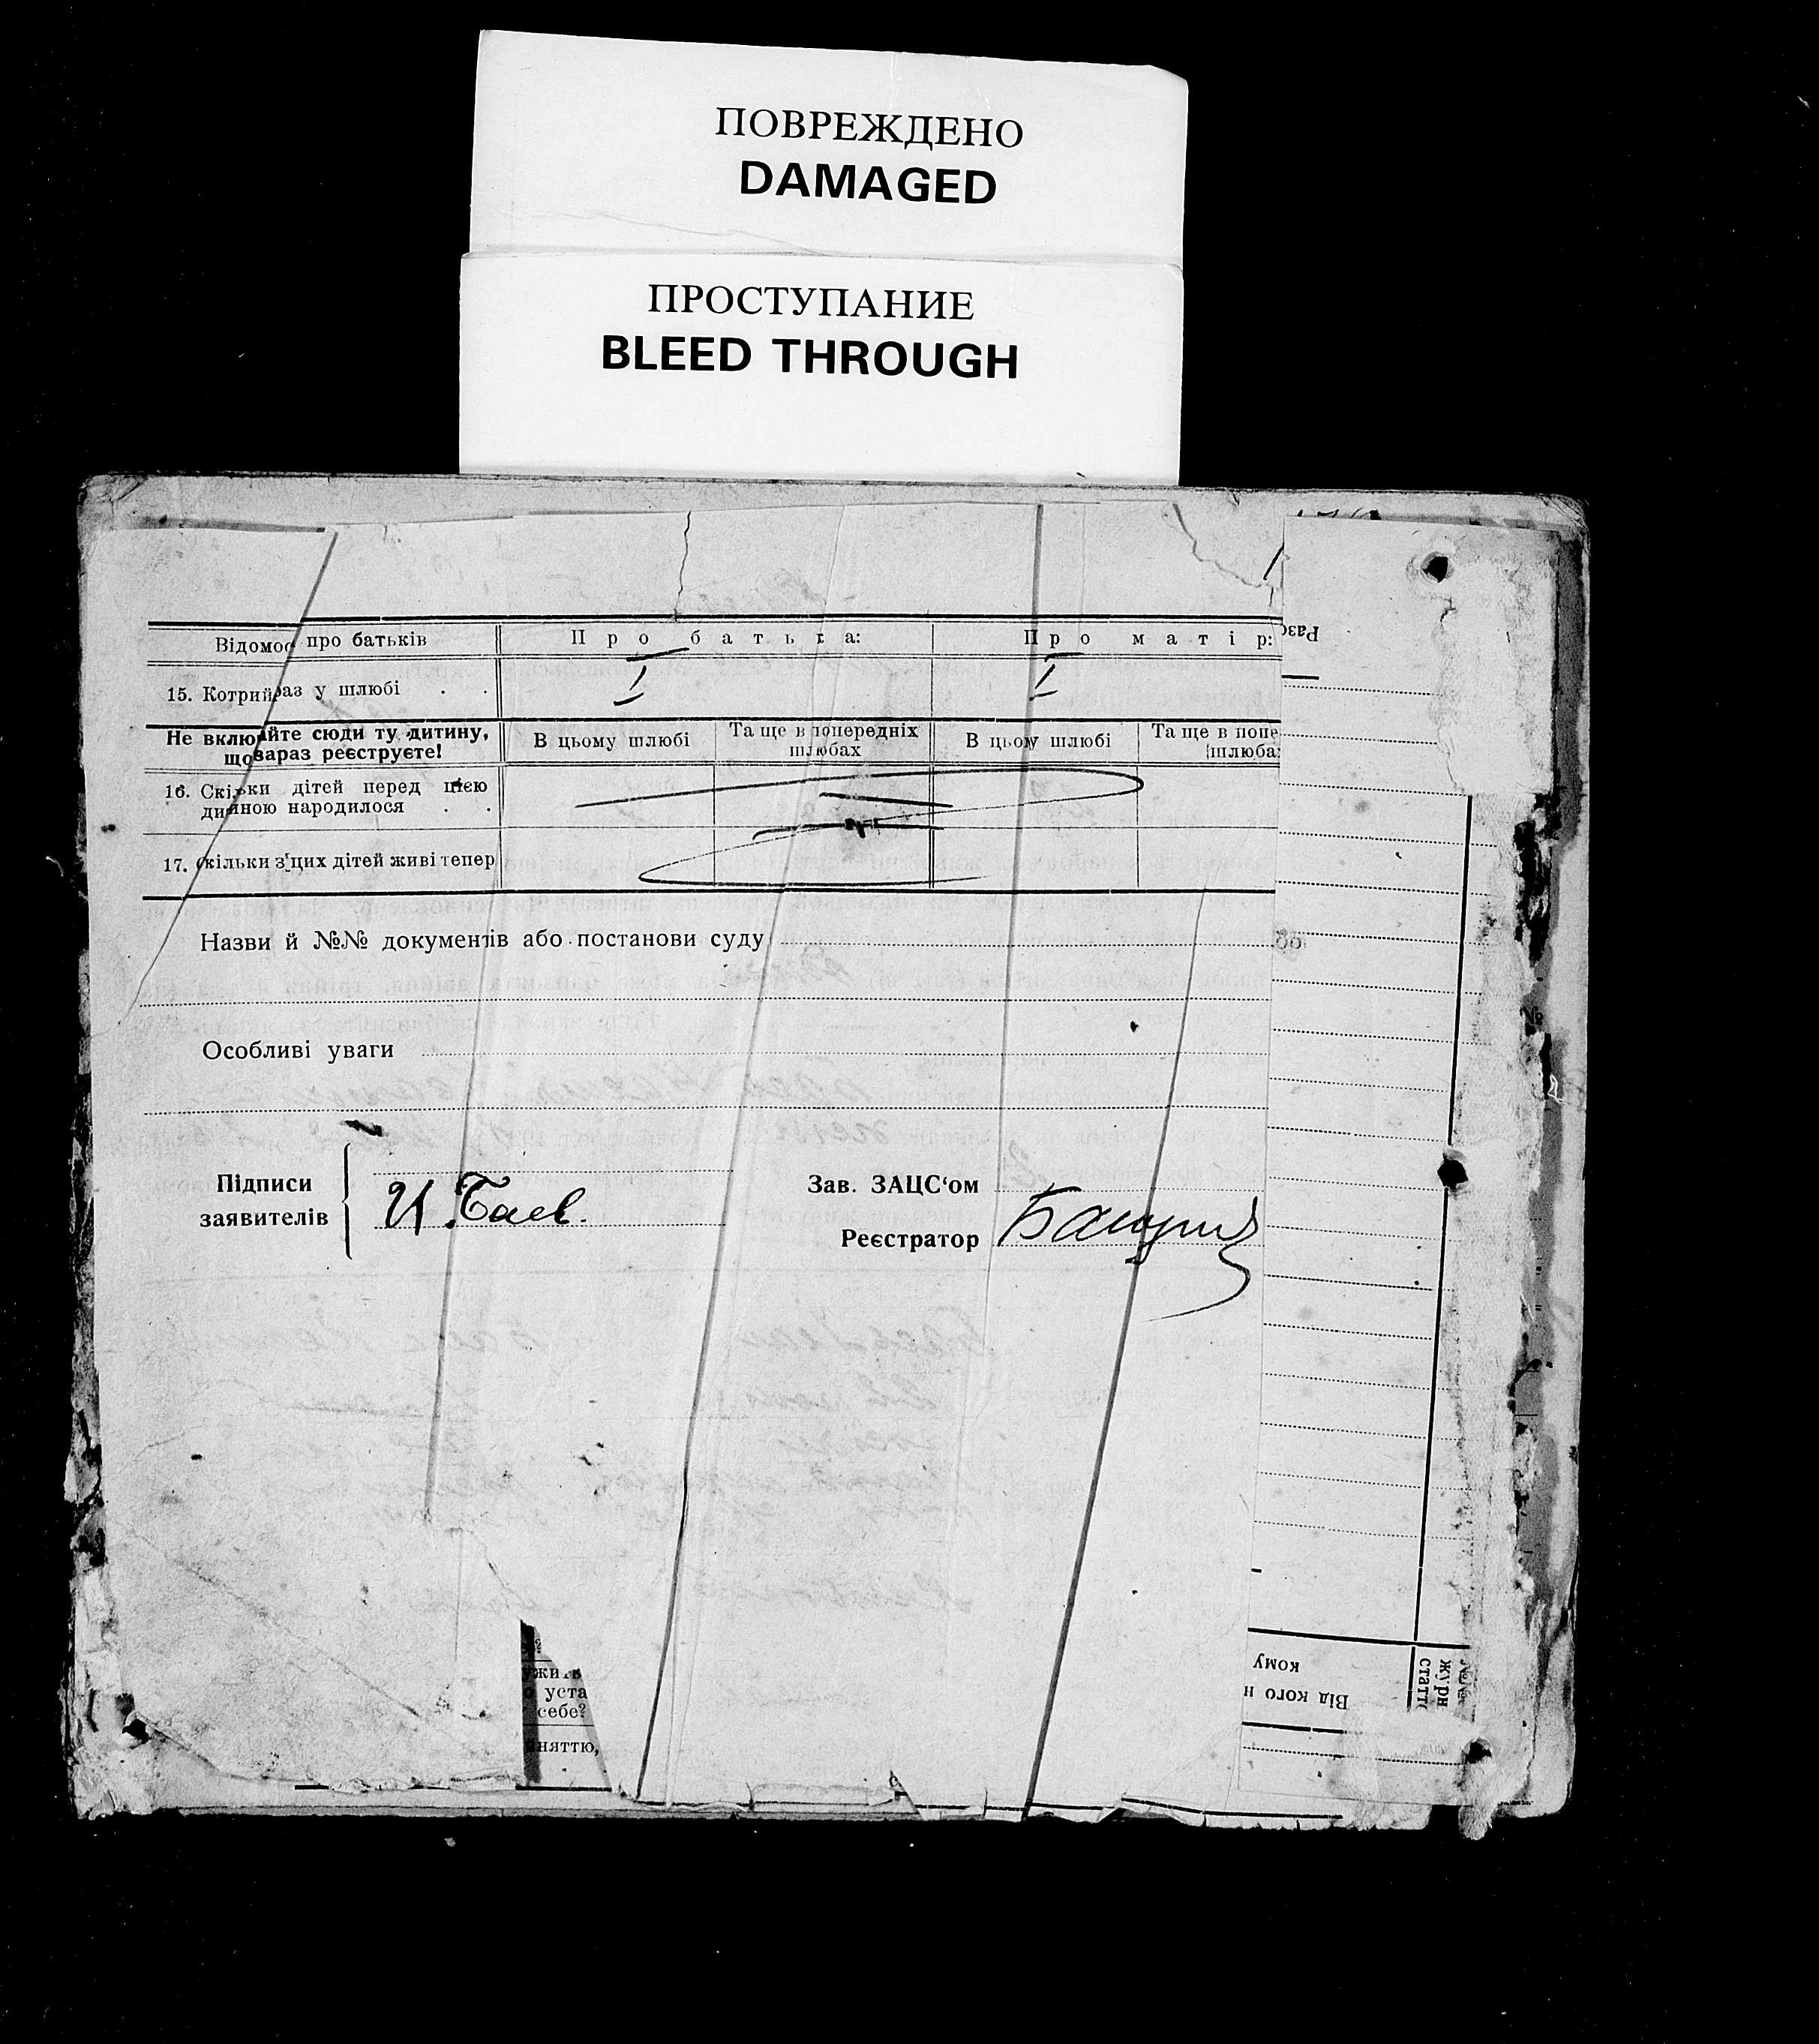 ПОВРЕЖДЕНО
DAMAGED
ПРОСТУПАНИЕ
BLEED THROUGH
Відомос про батьків Про батька: Про матір:
15. Котрий раз у шлюбі . . I I
Не включайте сюди ту дитину, В цьому шлюбі Та ще в попередніх шлюбах В цьому шлюбі Та ще в попе шлюба
що зараз реєструєте!
16. Скільки дітей перед цією
дитиною народилося . .
17. Скільки з цих дітей живі тепер
Назви й №№ документів або постанови суду
Особливі уваги
Підписи заявителів И. Баев.
Зав. ЗАЦС‘ом
Реєстратор
ужить
о уста
себе?
няттю,
Від кого н
кому
журн
статт
№